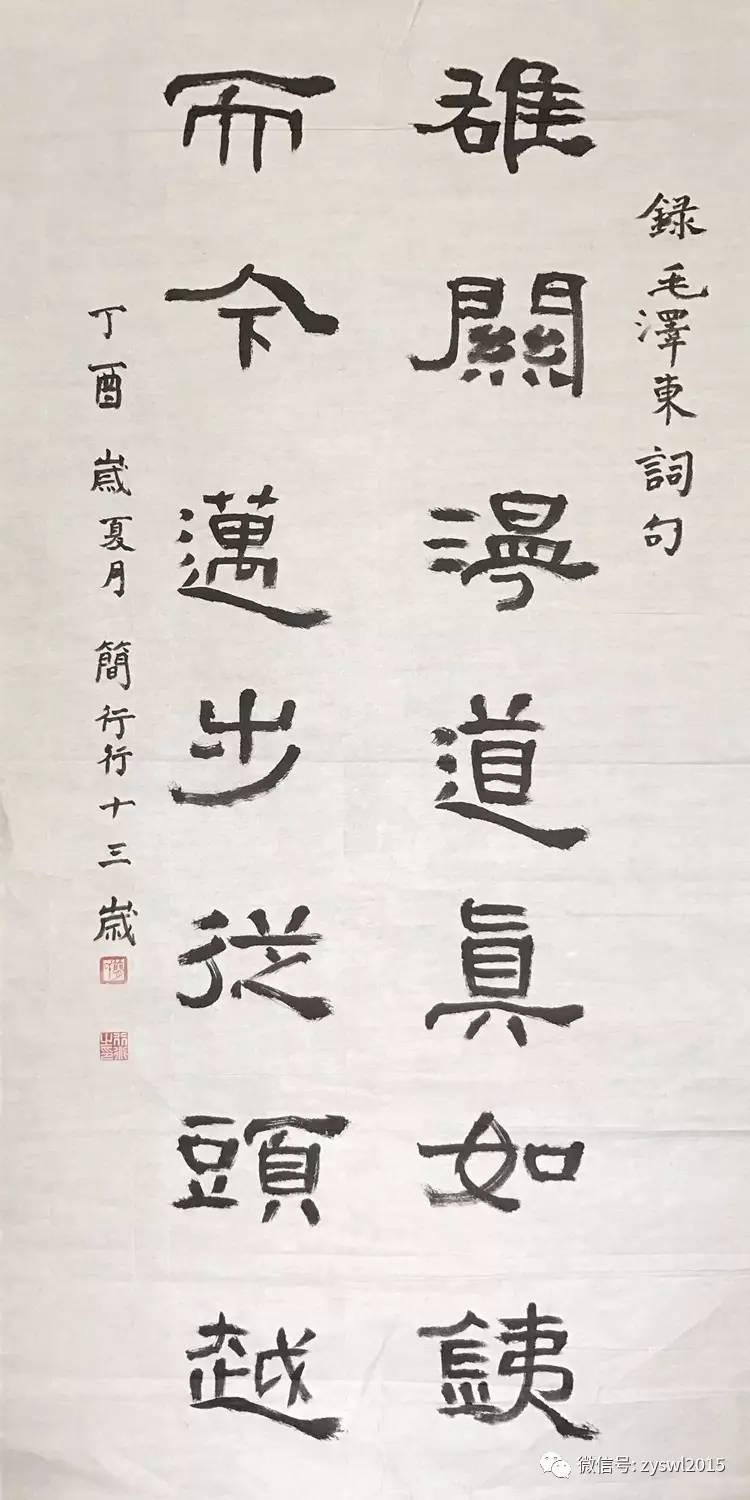 録毛澤東詞句
雄關漫道眞如銕
而今邁步從頭越
丁酉歲夏月 簡行行十三歲
微信号: zyswl2015